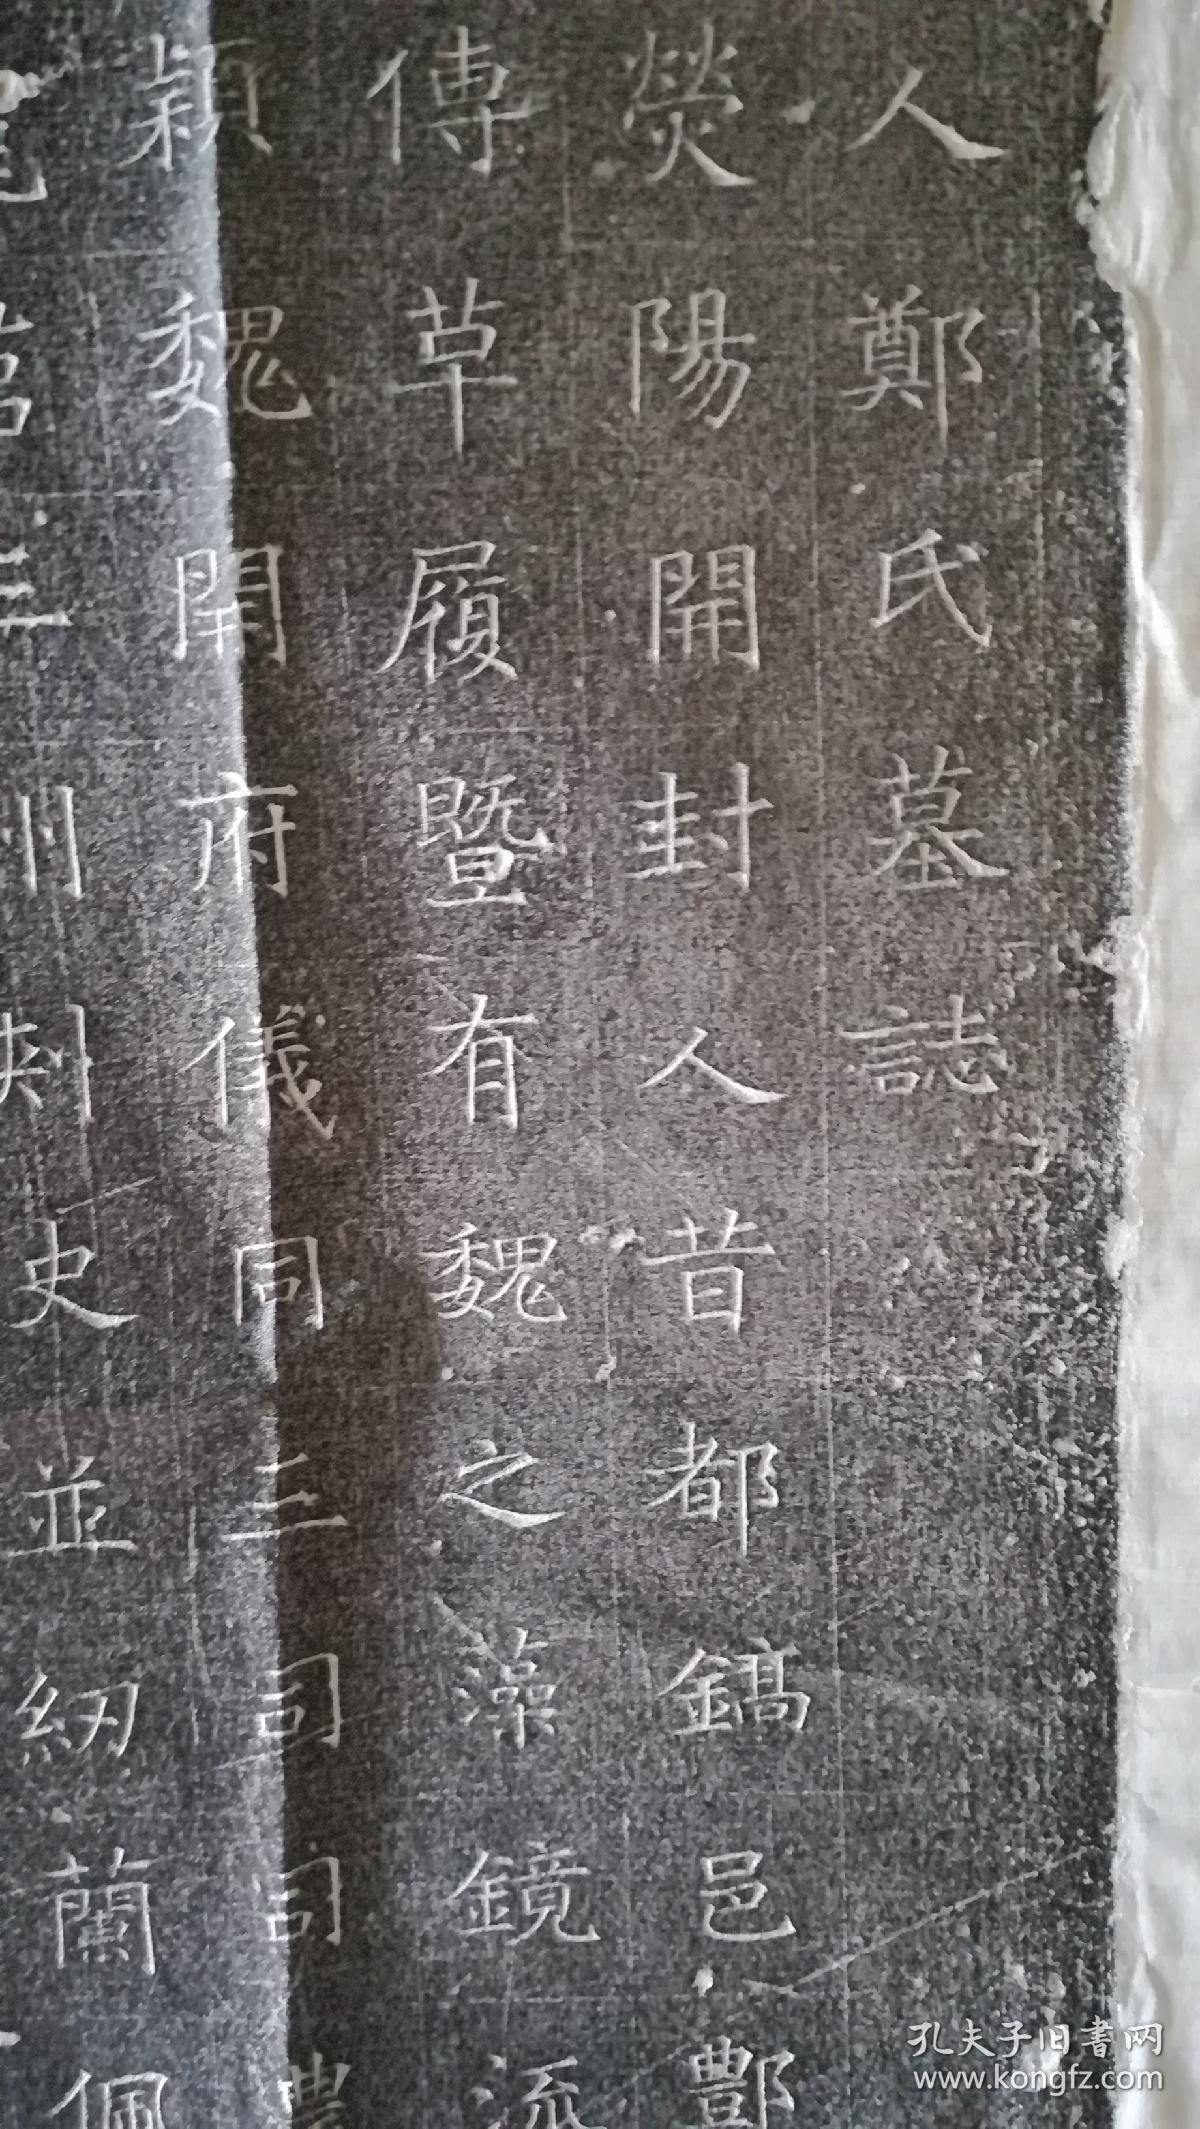 人鄭氏墓誌
滎陽開封人昔都鎬邑酆
傳草履暨有魏之藻鏡流
穎魏開府儀同三司司農
三州刾史並紉蘭佩
孔夫子旧書网
www.kongfz.com